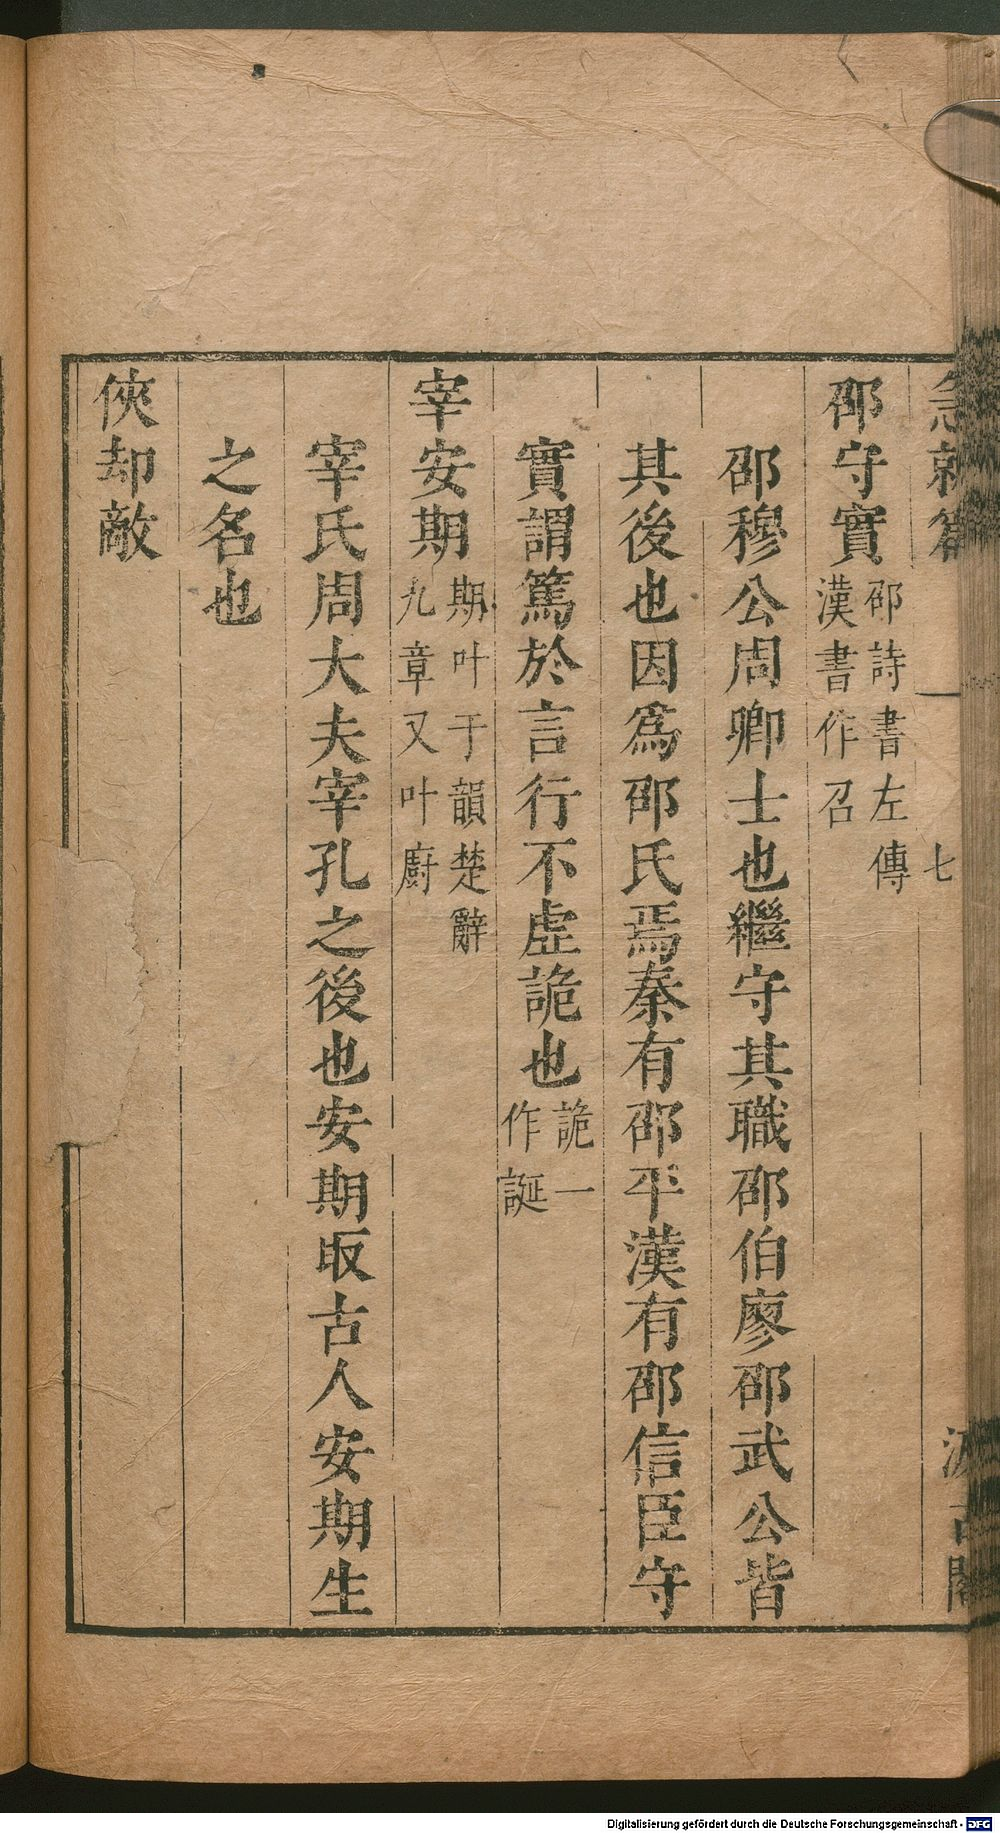 急就篇 七 汲古閣
邵守實 邵詩書左傳漢書作召
邵穆公周卿士也繼守其職邵伯廖邵武公皆
其後也因爲邵氏焉秦有邵平漢有邵信臣守
實謂篤於言行不虛詭也 詭一作誕
宰安期 期叶于韻楚辭九章又叶廚
宰氏周大夫宰孔之後也安期取古人安期生
之名也
俠却敵
Digitalisierung gefördert durch die Deutsche Forschungsgemeinschaft - DFG